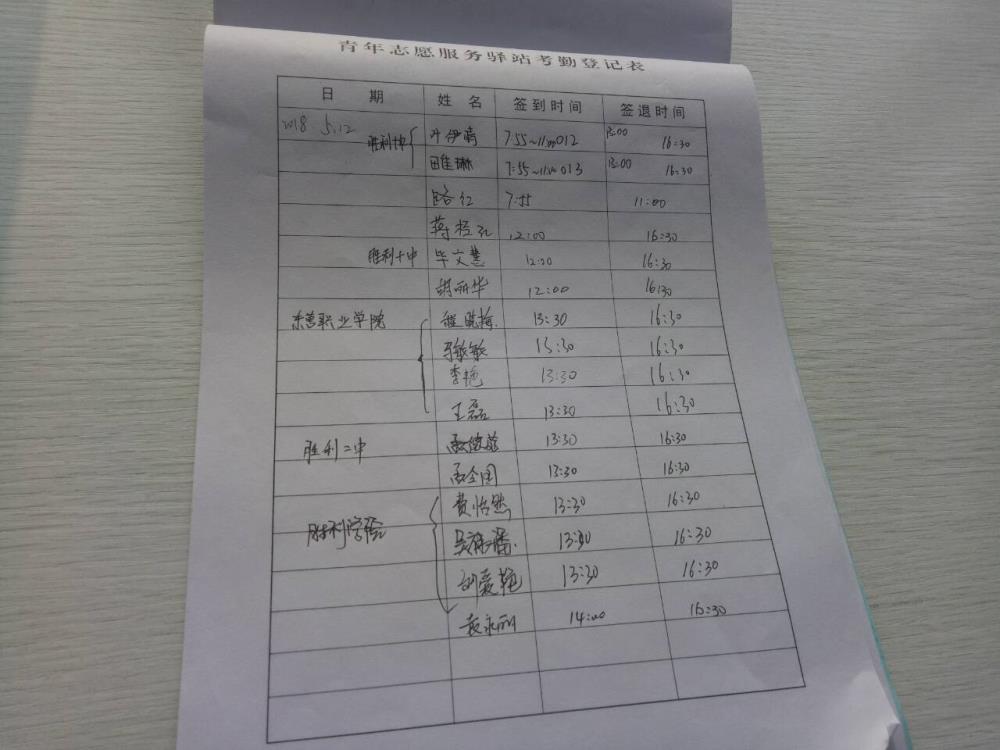 青年志愿服务驿站考勤登记表
日 期 姓 名 签到时间 签退时间
2018 5.12 胜利十中 叶伊萌 7:55~11:00 12 13:00 16:30
睢琳 7:55~11:00 13 13:00 16:30
路红 7:55 11:00
蒋 12:00 16:30
胜利十中 毕文慧 12:00 16:30
胡丽华 12:00 16:30
东营职业学院 程晓梅 13:30 16:30
马敏敏 13:30 16:30
李艳 13:30 16:30
王磊 13:30 16:30
胜利二中 孟 13:30 16:30
孟全国 13:30 16:30
胜利学院 费怡然 13:30 16:30
吴 13:30 16:30
刘爱艳 13:30 16:30
袁永丽 14:00 16:30